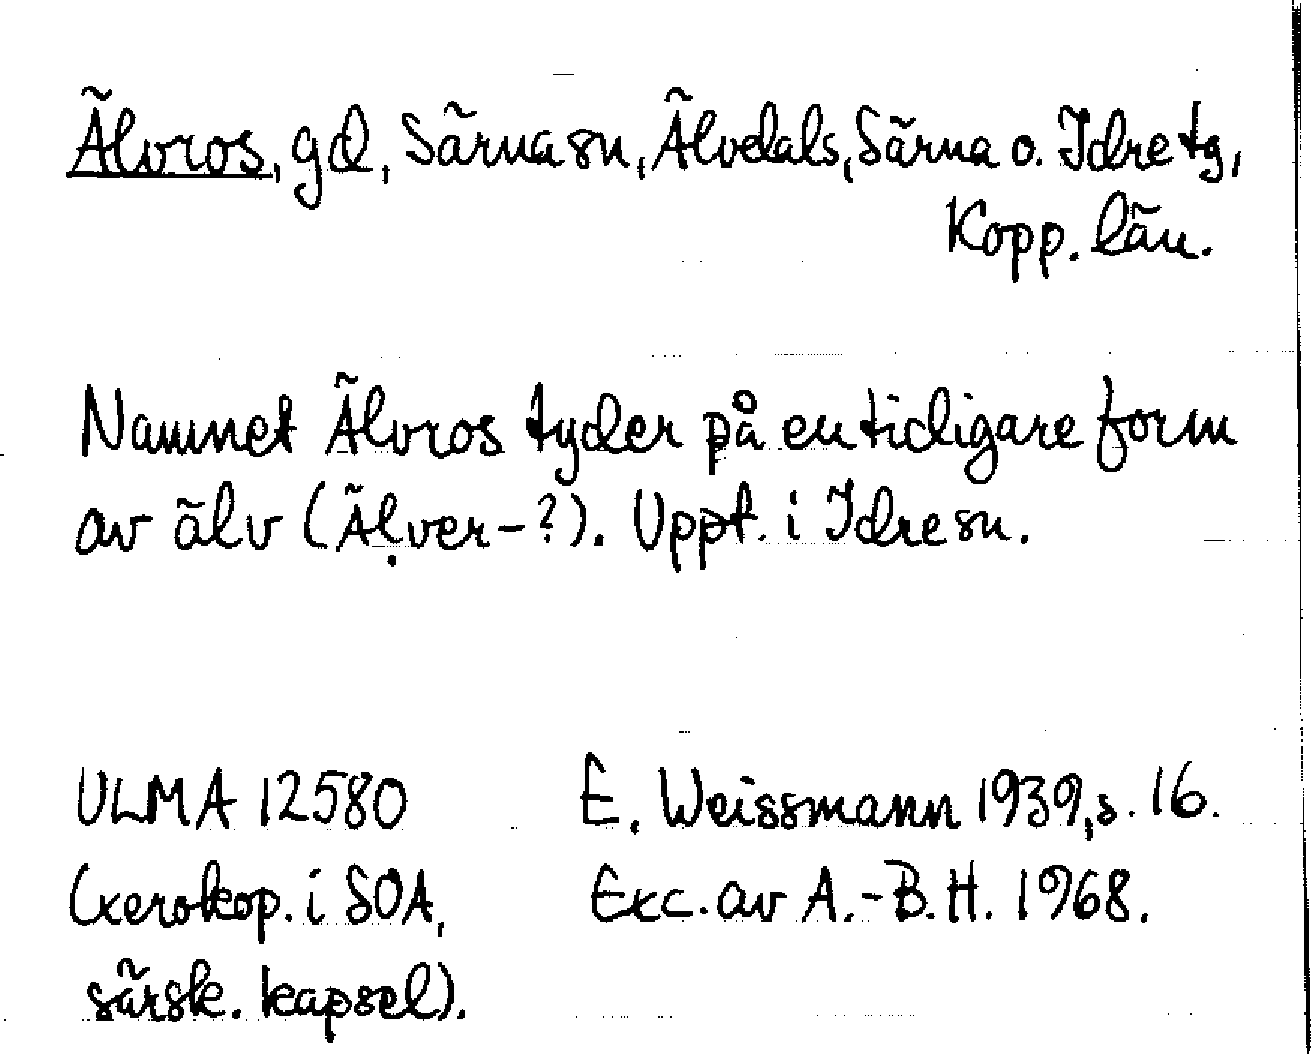 Älvros, gd, Särna sn, Älvdals, Särna o. Idre tg,
Kopp. län.
Namnet Älvros tyder på en tidigare form
av älv (Äḷver-?). Uppt. i Idre sn.
ULMA 12580 E. Weissmann 1939, s. 16.
(xerokop. i SOA, Exc. av A.-B. H. 1968.
särsk. kapsel).